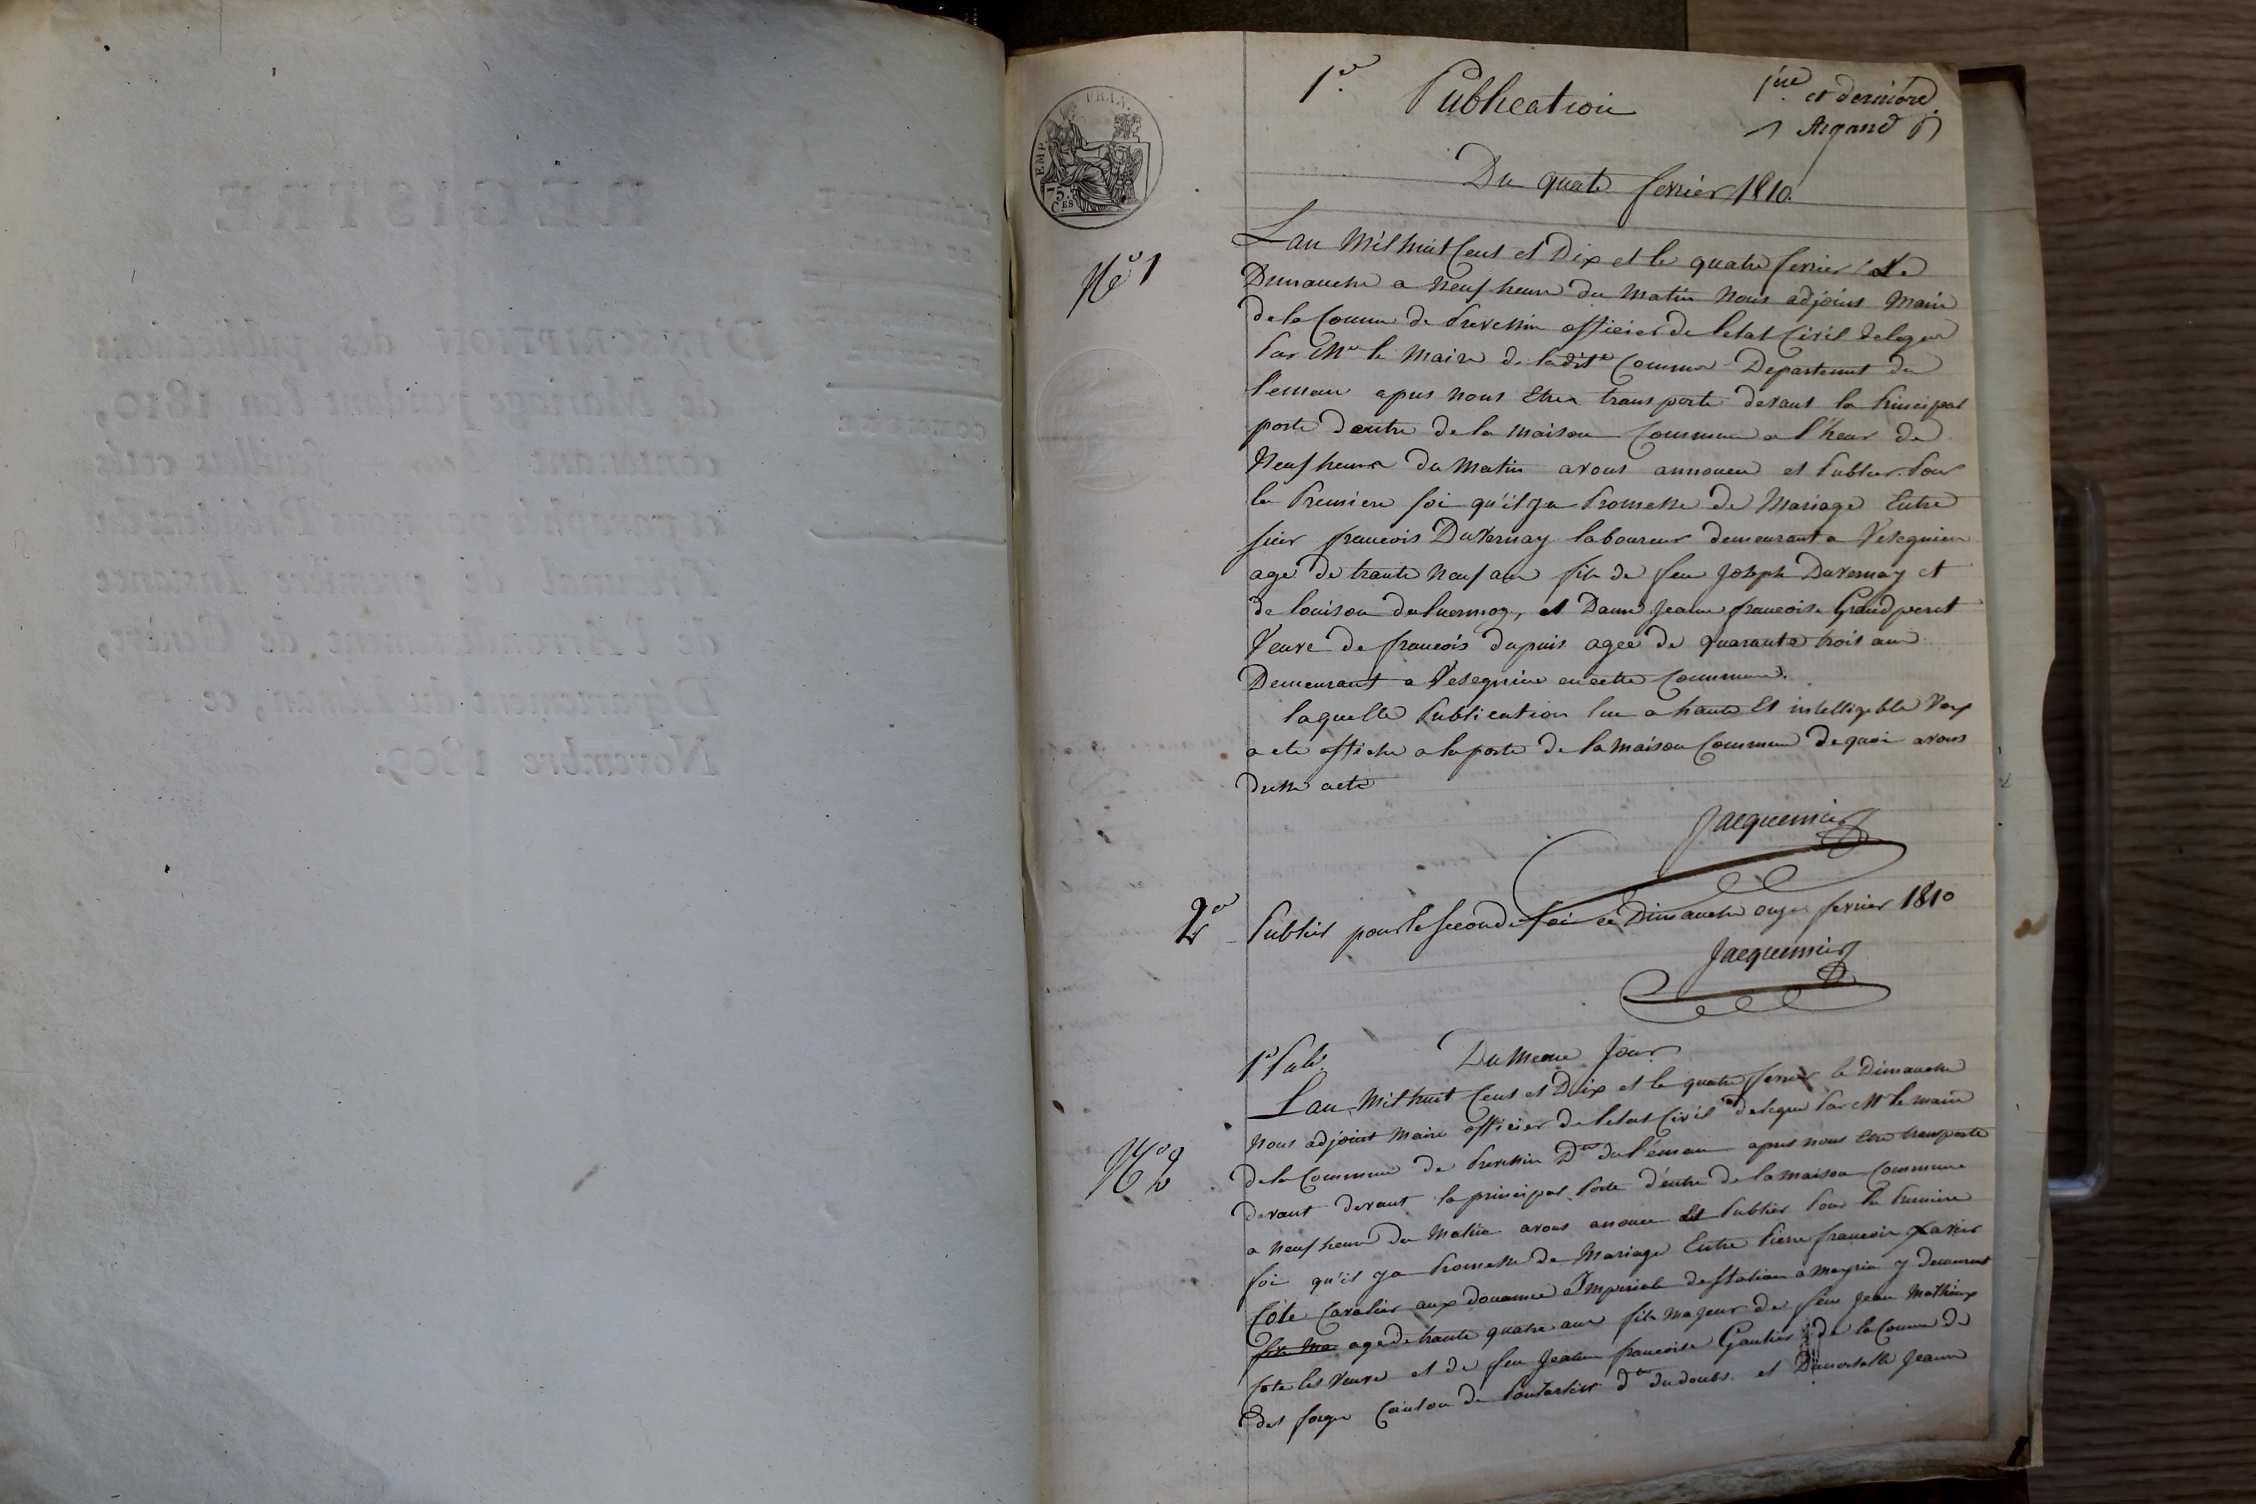 1re Publication
1ère et dernière
Argand
Du quatre fevrier 1810.
EMP. FRAN.
75 CES
No 1
L'an Mil huit Cent et Dix et le quatre fevrier Le
Dimanche a neuf heure du matin Nous adjoint Maire
de la Comune de Prevessin officier de l'etat Civil delegue
Par Mr le Maire de ladite Commune Departemt du
leman apres nous Etre transporte devant la Principal
porte dentre de la maison Commune a l'heur de
Neuf heure du Matin avons annoncu et Publier Pour
la Premiere foi qu'il ya Promesse de Mariage Entre
sieur francois Duvernay laboureur demeurant a Vesegnien
age de trante neuf ans fils de feu Joseph Duvernay et
de louison et Dame Jeanne francoise Grandperet
Veuve de francois dupuis agee de quarante trois ans
Demeurant a Vesegnien en cette Commune.
laquelle Publication lue a haute Et intelligible Voix
a ete affiche a la porte de la Maison Commune de quoi avons
dresse acte
Jacquemier
2e Publié pour le seconde foi ce Dimanche onze fevrier 1810
Jacquemier
1e Pub. Du Meme Jour
No 2
L'an Mil huit Cent et Dix et le quatre fevrier le Dimanche
Nous adjoint Maire officier de l'etat Civil delegue Par Mr le maire
de la Commune de Prevessin Dt du léman apres nous Etre transporte
devant devant la principal Porte d'entre de la maison Commune
a neuf heure du Matin avons anonce Et Publier Pour la Premiere
foi qu'il ya Promesse de Mariage Entre Pierre francois Xavier
Cote Cavalier aux douanne Imperiale de station a Meyrin y demeurant
fils Ma age de trante quatre ans fils majeur de feu Jean Mathieux
Cote les Veuve et de feu Jeanne francoise Gautier de la Comune de
des forge Canton de Pontarlier dt du doubs. et Dimoiselle Jeanne
REGISTRE
D'INSCRIPTION des publications
de Mariage pendant l'an 1810,
contenant feuillets cotés
et paraphés par nous Président du
Tribunal de première Instance
de l'Arrondissement de Genève,
Département du Léman, ce
Novembre 1809.